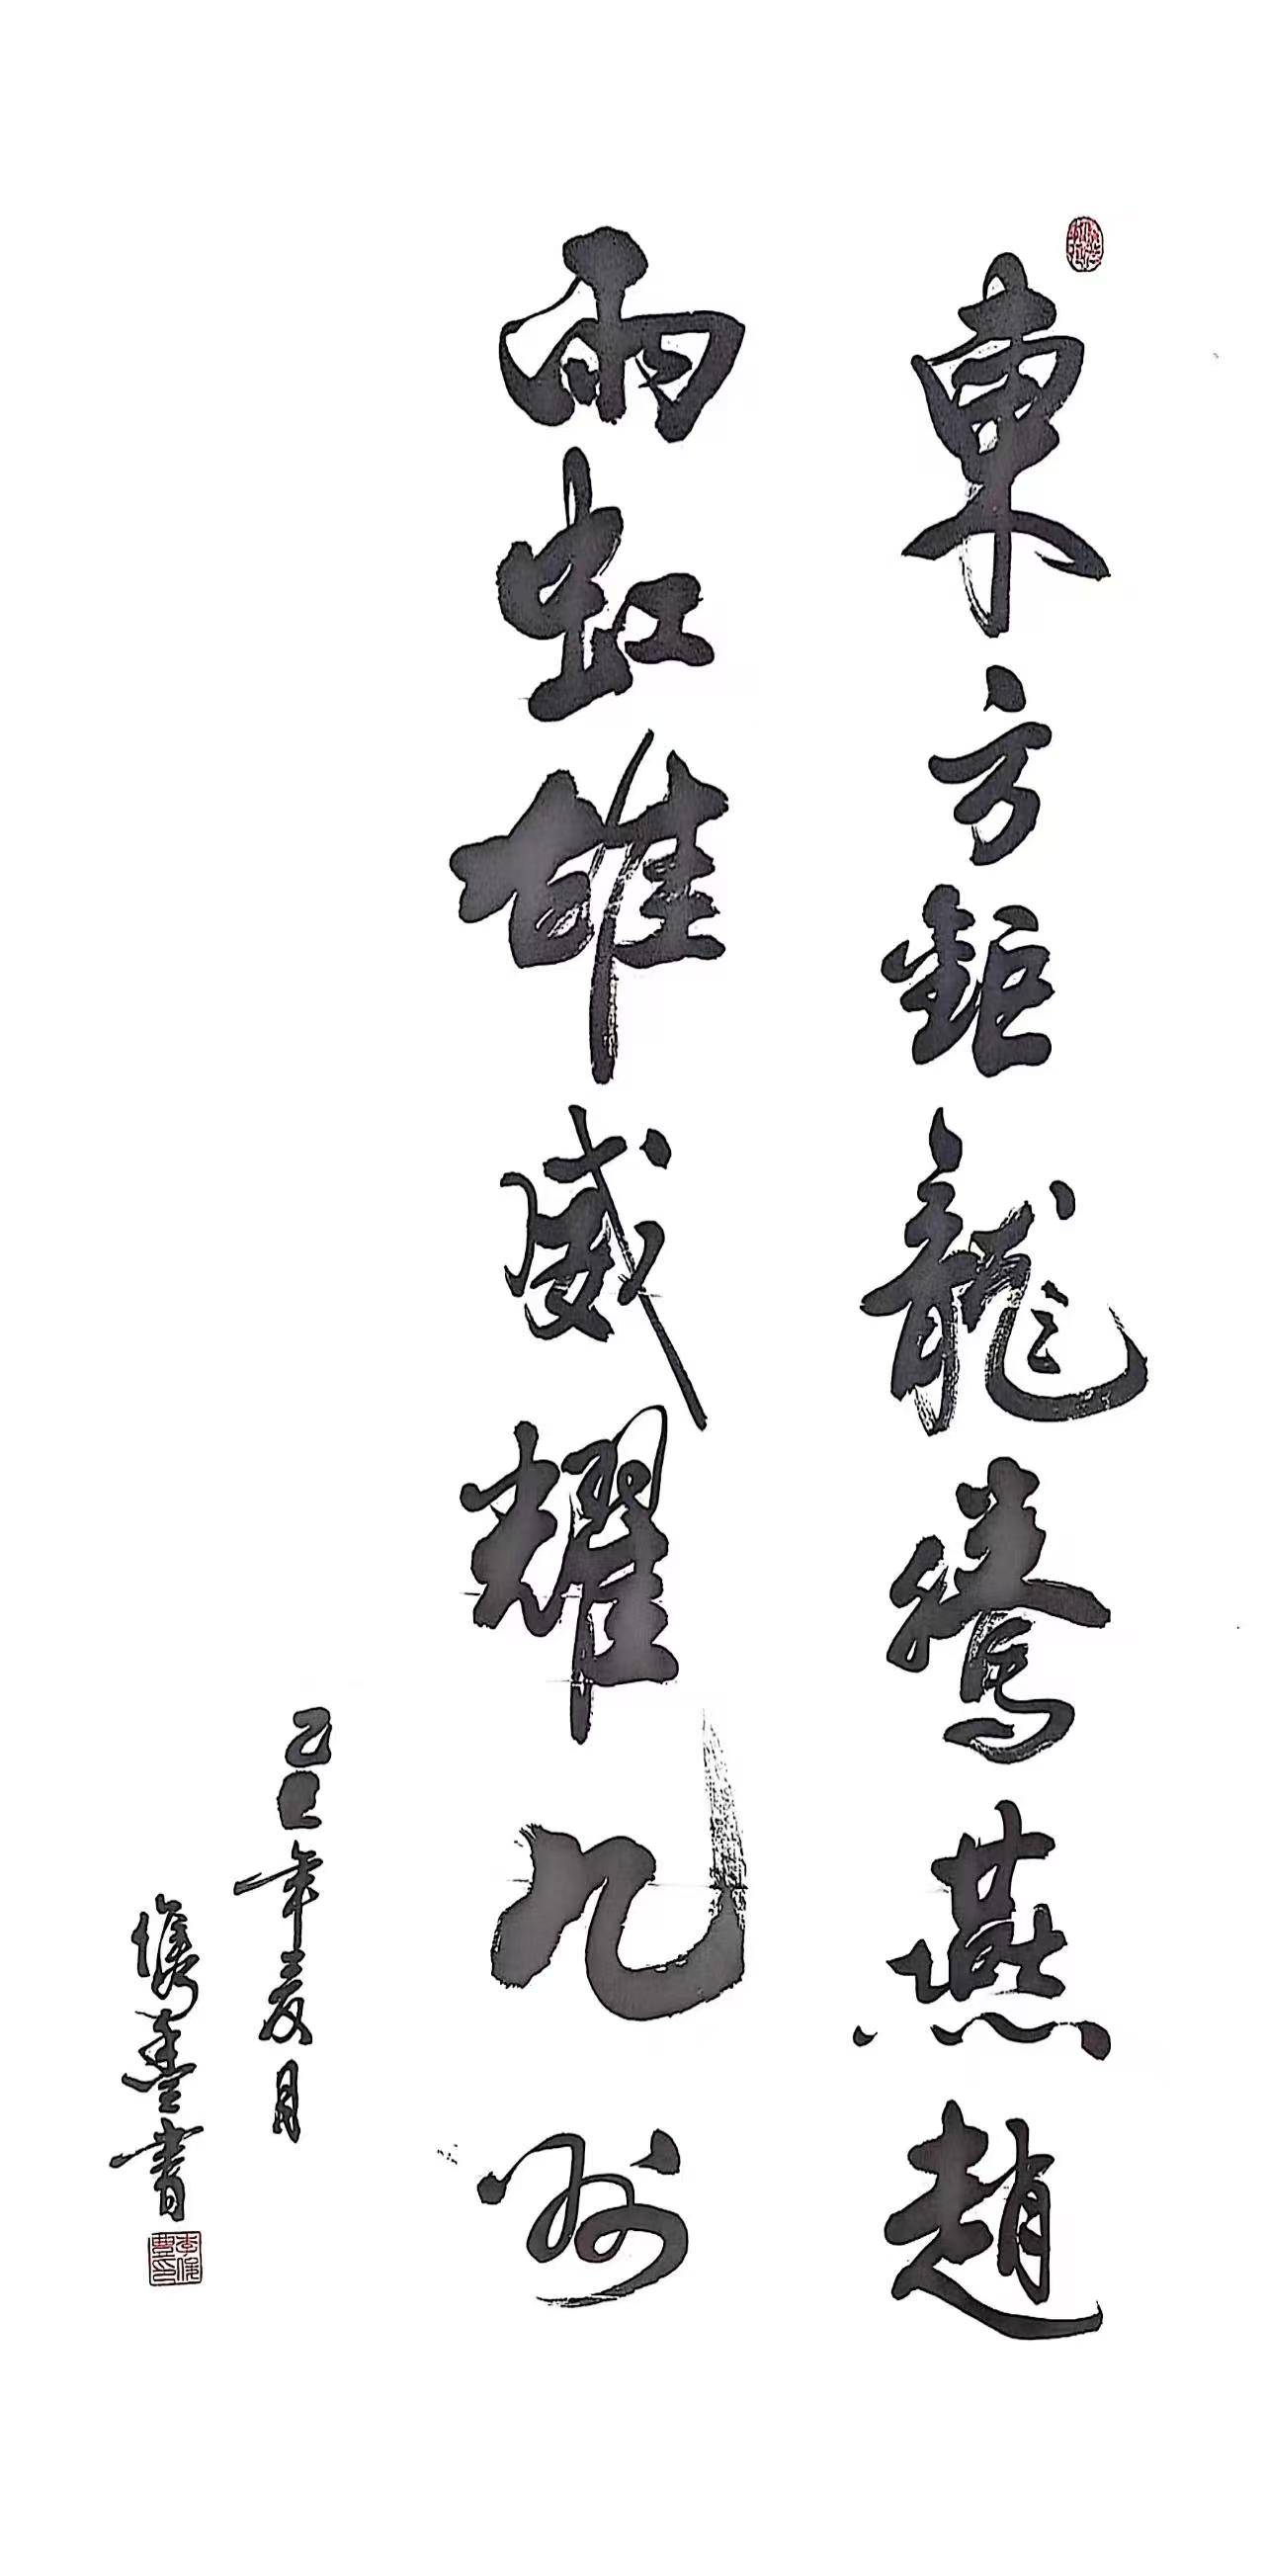 東方鉅龍騰燕趙
雨虹雄威耀九州
乙巳年夏月
書